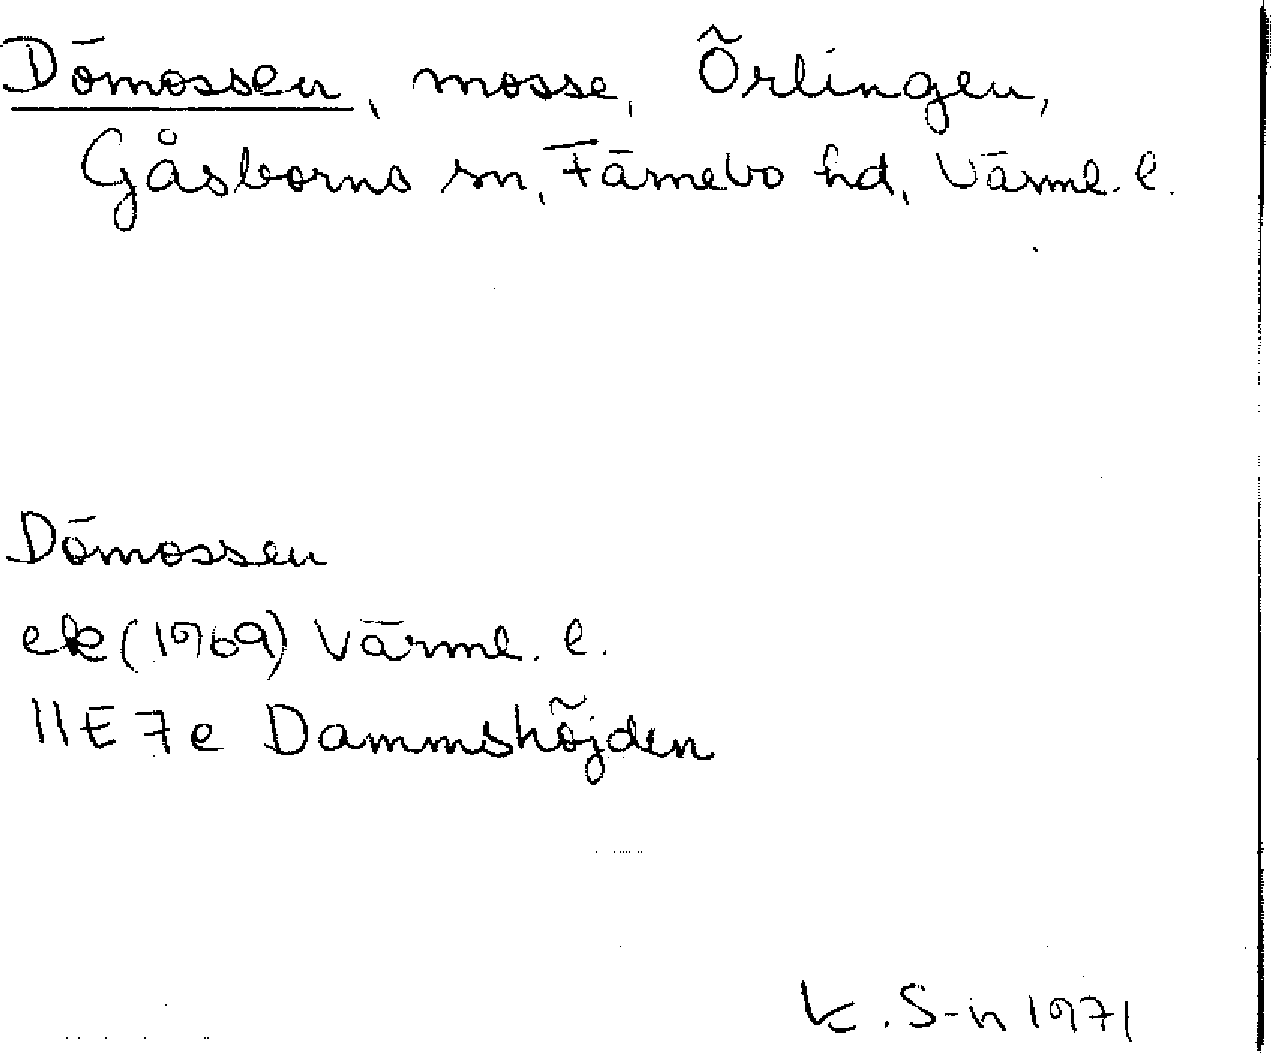 Dömossen, mosse, Örlingen,
Gåsborns sn, Färnebo hd, Värml. l.
Dömossen
ek (1969) Värml. l.
11E 7e Dammshöjden
K. S-n 1971